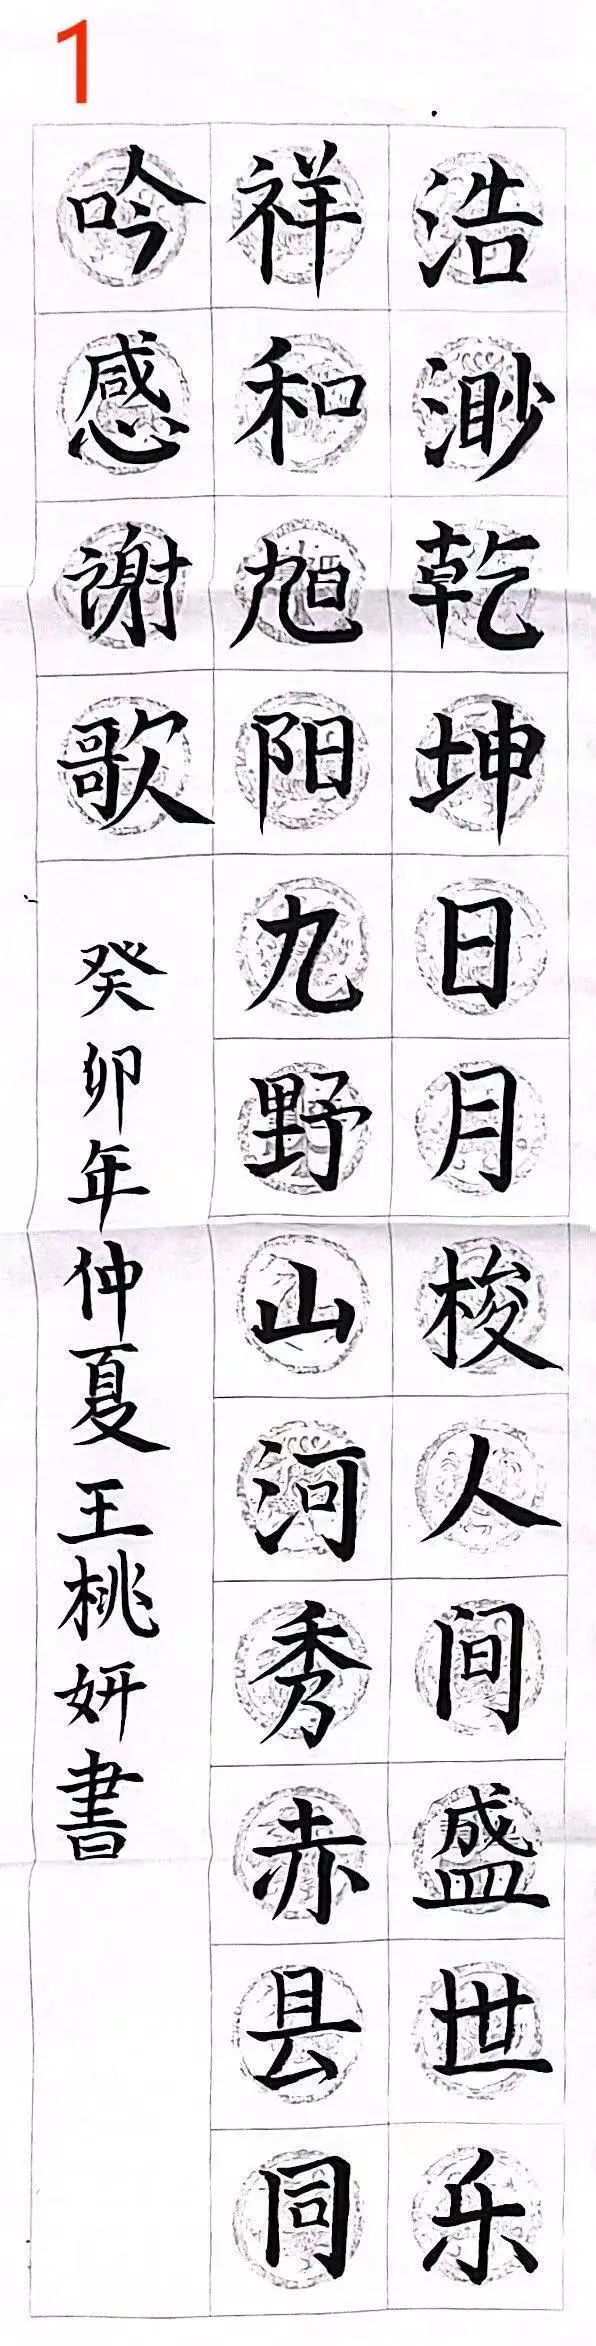 1
浩渺乾坤日月梭人间盛世乐
祥和旭阳九野山河秀赤县同
吟感谢歌
癸卯年仲夏王桃妍書